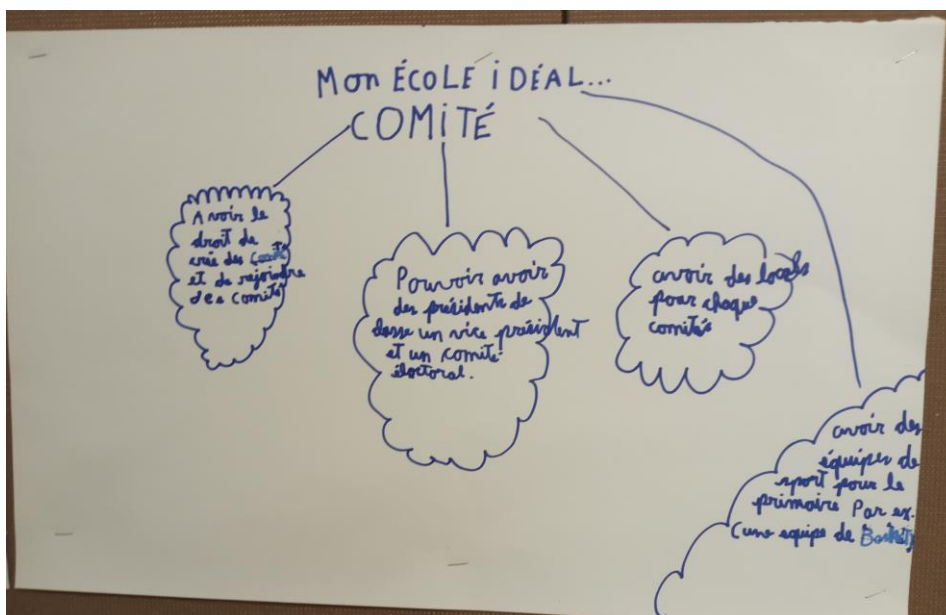 Mon ÉCOLE iDÉAL...
COMiTÉ
Avoir le
droit de
crée des comité
et de rejoindre
des comité
Pouvoir avoir
des présidents de
classe un vice président
et un comité
éloctoral.
avoir des locals
pour chaque
comités
avoir des
équipes de
sport pour le
primaire Par ex.
(une equipe de